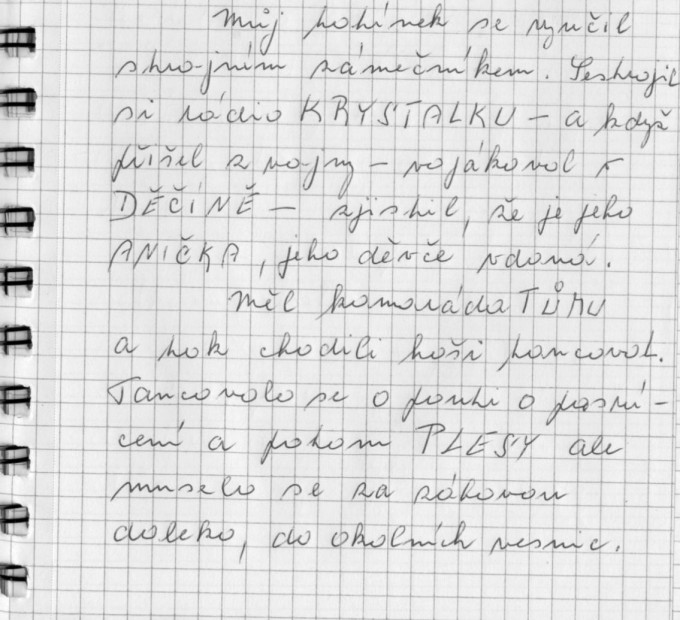 Můj tatínek se vyučil
strojním zámečníkem. Sestrojil
si rádio KRYSTALKU – a když
přišel z vojny – vojákoval v
DĚČÍNĚ – zjistil, že je jeho
ANIČKA, jeho děvče vdaná.
Měl kamaráda TŮMU
a pak chodili hoši tancovat.
Tancovalo se o pouti o posví-
cení a potom PLESY ale
muselo se za zábavou
daleko, do okolních vesnic.